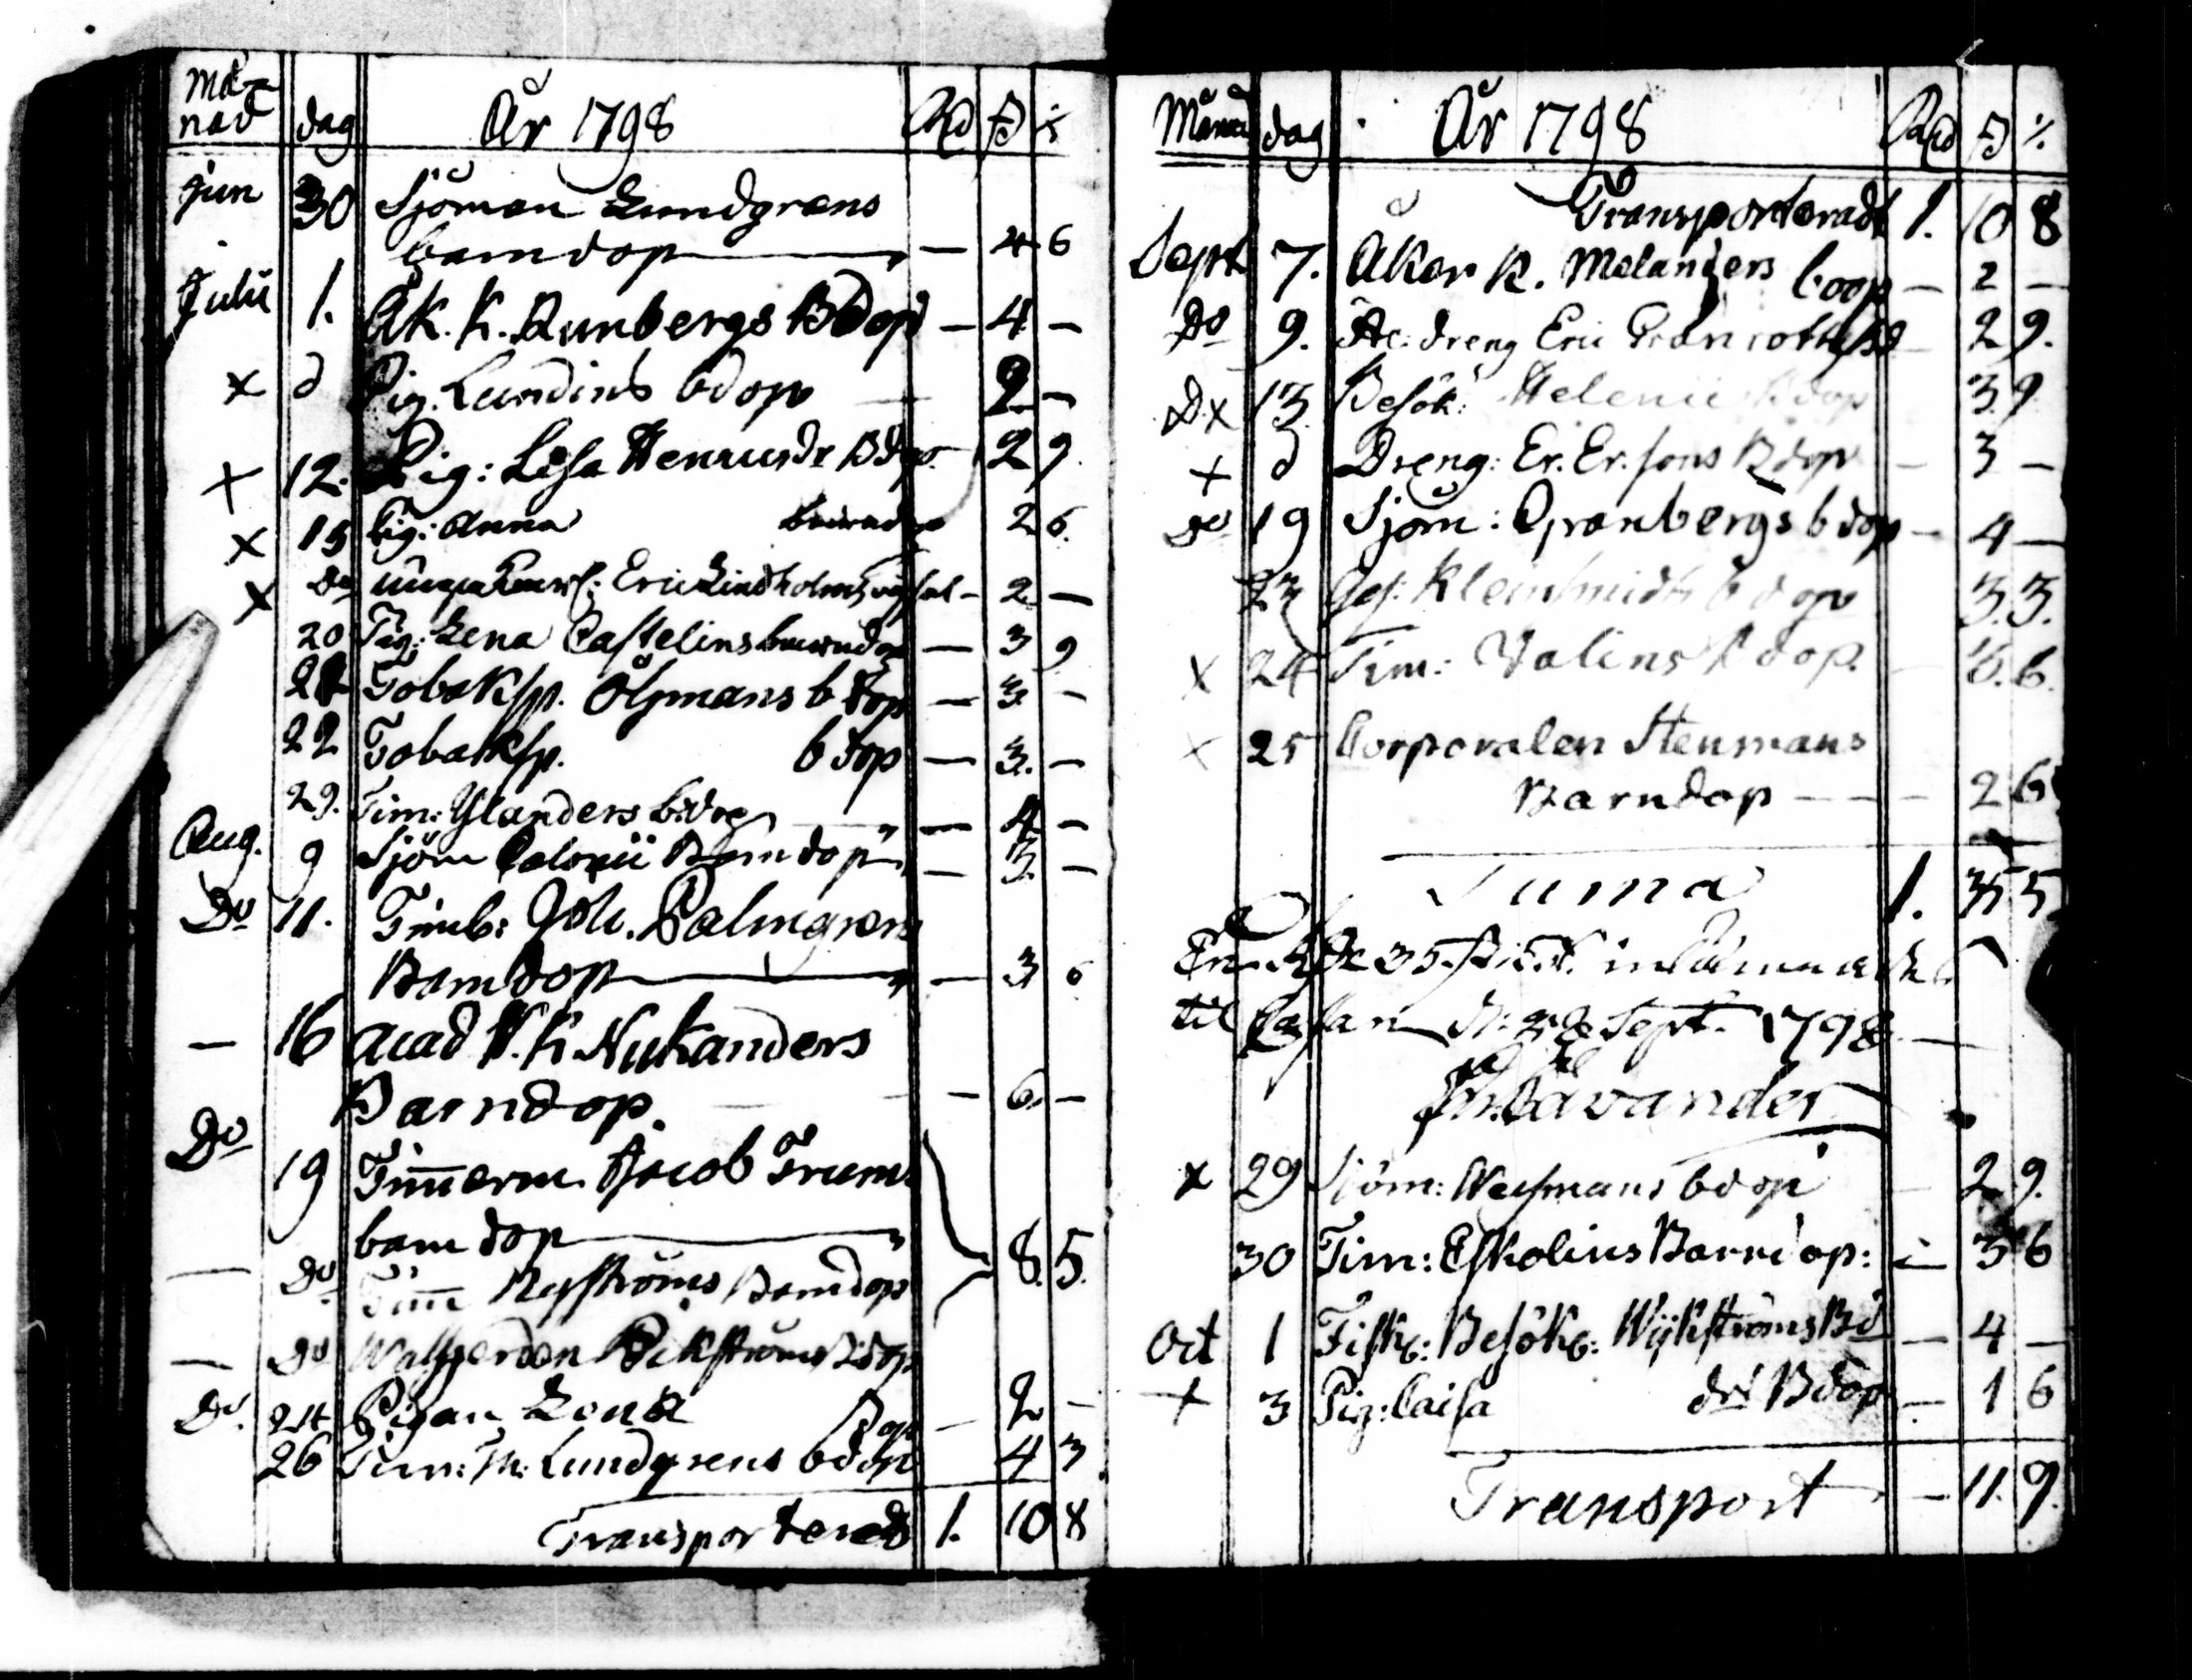 Må-
nad dag År 1798 Rd ß
jun 30 Sjöman Lundgrens
barndop — 4 6
Julii 1. Åk. K. Runbergs Bdop — 4 —
x d Pig. Lundins bdop 2 —
x 12. Pig: Lisa Bdop 2 9
x 15 Pig: Anna barndop 2 6.
x Do Eric Lindholms — 2 —
20 Pig: Lena Castelins barndop — 3 9
Tobaksp. Öhmans bdop — 3 —
22 Tobaksp. bdop — 3. —
29. Tim: Ylanders bdop — 4 —
Aug. 9 Sjöm Calonii Barndop — 3. —
Do 11. Timb: Joh. Palmgrens
Barndop — 3 6
— 16 acad V. K. Nykanders
Barndop. — 6. —
Do 19 Timmerm. Jacob
barndop
— Do Timm Nyströms Barndop 8. 5.
— Do Bdop
Do. 24 Pigan Lena Bdop — 2 —
26 Tim: M: Lundgrens bdop 4 3
Transporteras 1. 10 8
Månad dag År 1798 Rd ß
Transporteradt 1. 10 8
Sept 7. Åker K. Melanders bdop — 2 —
Do 9. dreng Eric 2 9.
Do x 13 Besök: Helenii Bdop 3. 9
x d Dreng: Er. Ersons Bdop — 3 —
Do 19 Sjöm: Granbergs bdop — 4 —
23 Ges: Kleinschmidts bdop 3. 3.
x 24 Tim: Valins Bdop. 6.
x 25 Corporalen Stenmans
Barndop — 2 6
Suma 1. 35 5
En Rdr 35 ß 5 inlämnade
til Cassan d. 28 Sept. 1798 —
Lavander
x 29 Sjöm: Wesmans bdop 2 9.
30 Tim: Eskolins Barndop: 3 6
Oct 1 Fisk: Besök: Wijkströms Bd — 4 —
x 3 Pig: Caisa dr Bdop — 1 6
Transport — 11. 9.